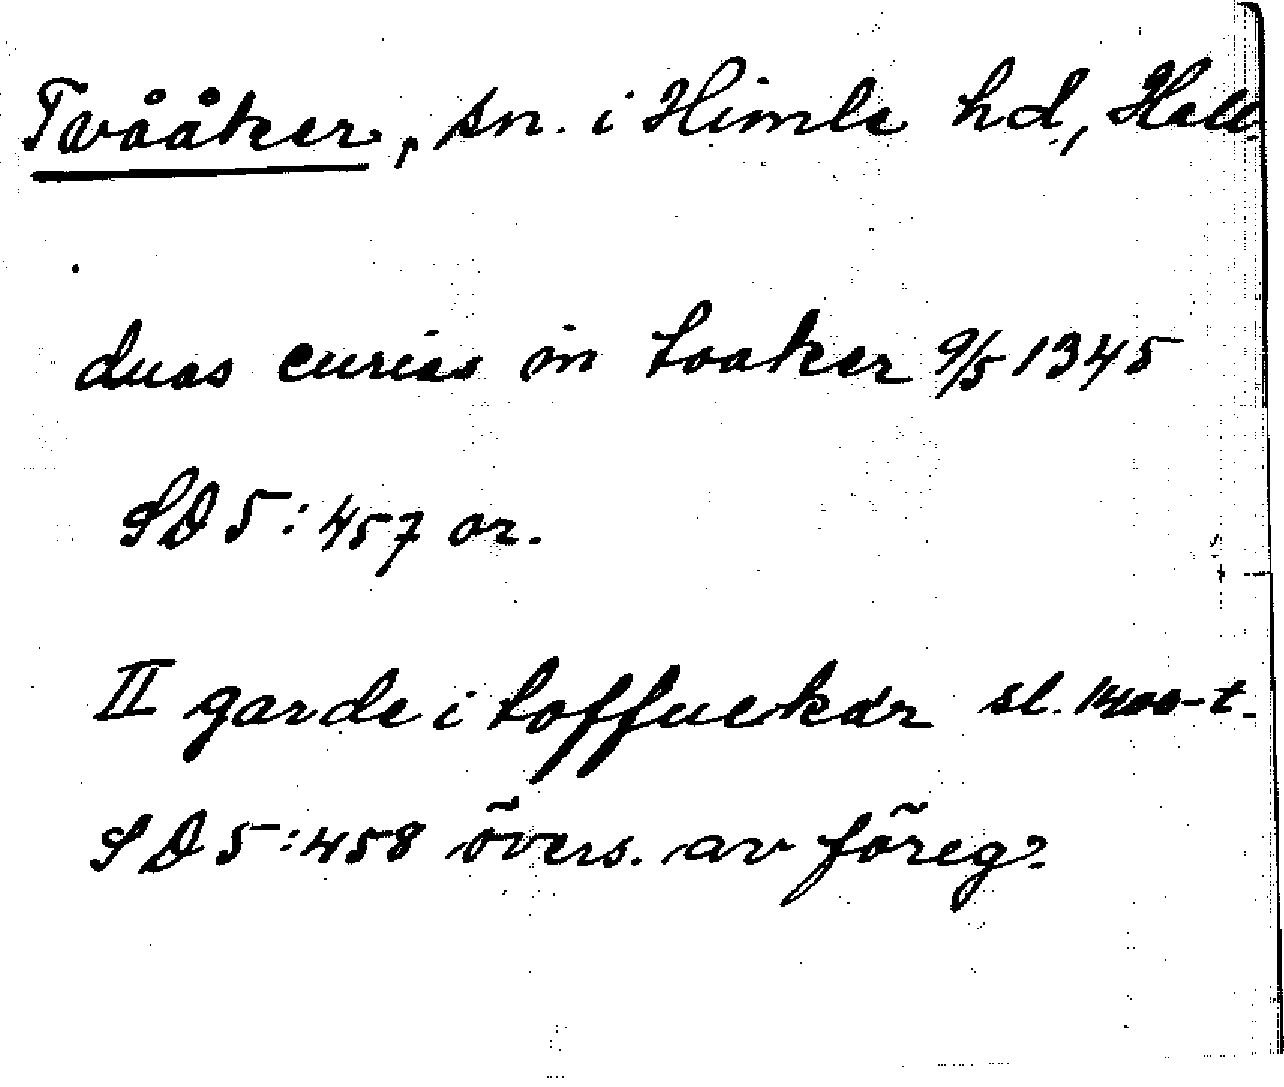 Tvååker, sn. i Himle hd, Hall.
duas curias in toaker 9/5 1345
SD 5:457 or.
II garde i toffuekær sl. 1400-t.
SD 5:458 övers. av föreg.